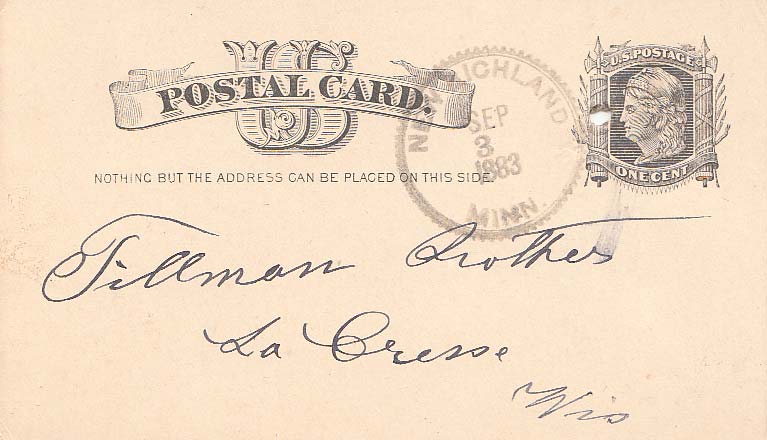 US
POSTAL CARD.
NOTHING BUT THE ADDRESS CAN BE PLACED ON THIS SIDE.
NEW RICHLAND
SEP
3
1883
MINN
U.S. POSTAGE
ONE CENT
Tillman Brothers
La Cresse
Wis